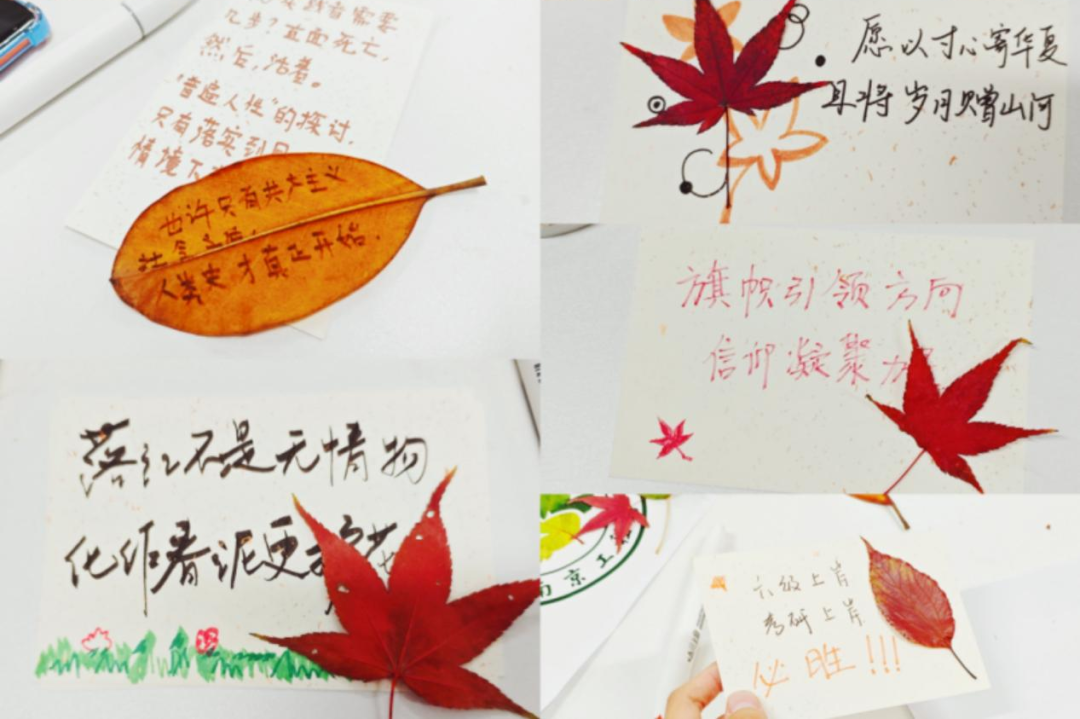 需要
几步？直面死亡，
然后，活着。
“普遍人性”的探讨，
只有落实到
情境下
也许只有共产主义
社会
人类史才真正开始．
愿以寸心寄华夏
且将岁月赠山河
旗帜引领方向
信仰凝聚力
落红不是无情物
化作春泥更护花
南京工
六级上岸
考研上岸
必胜!!!